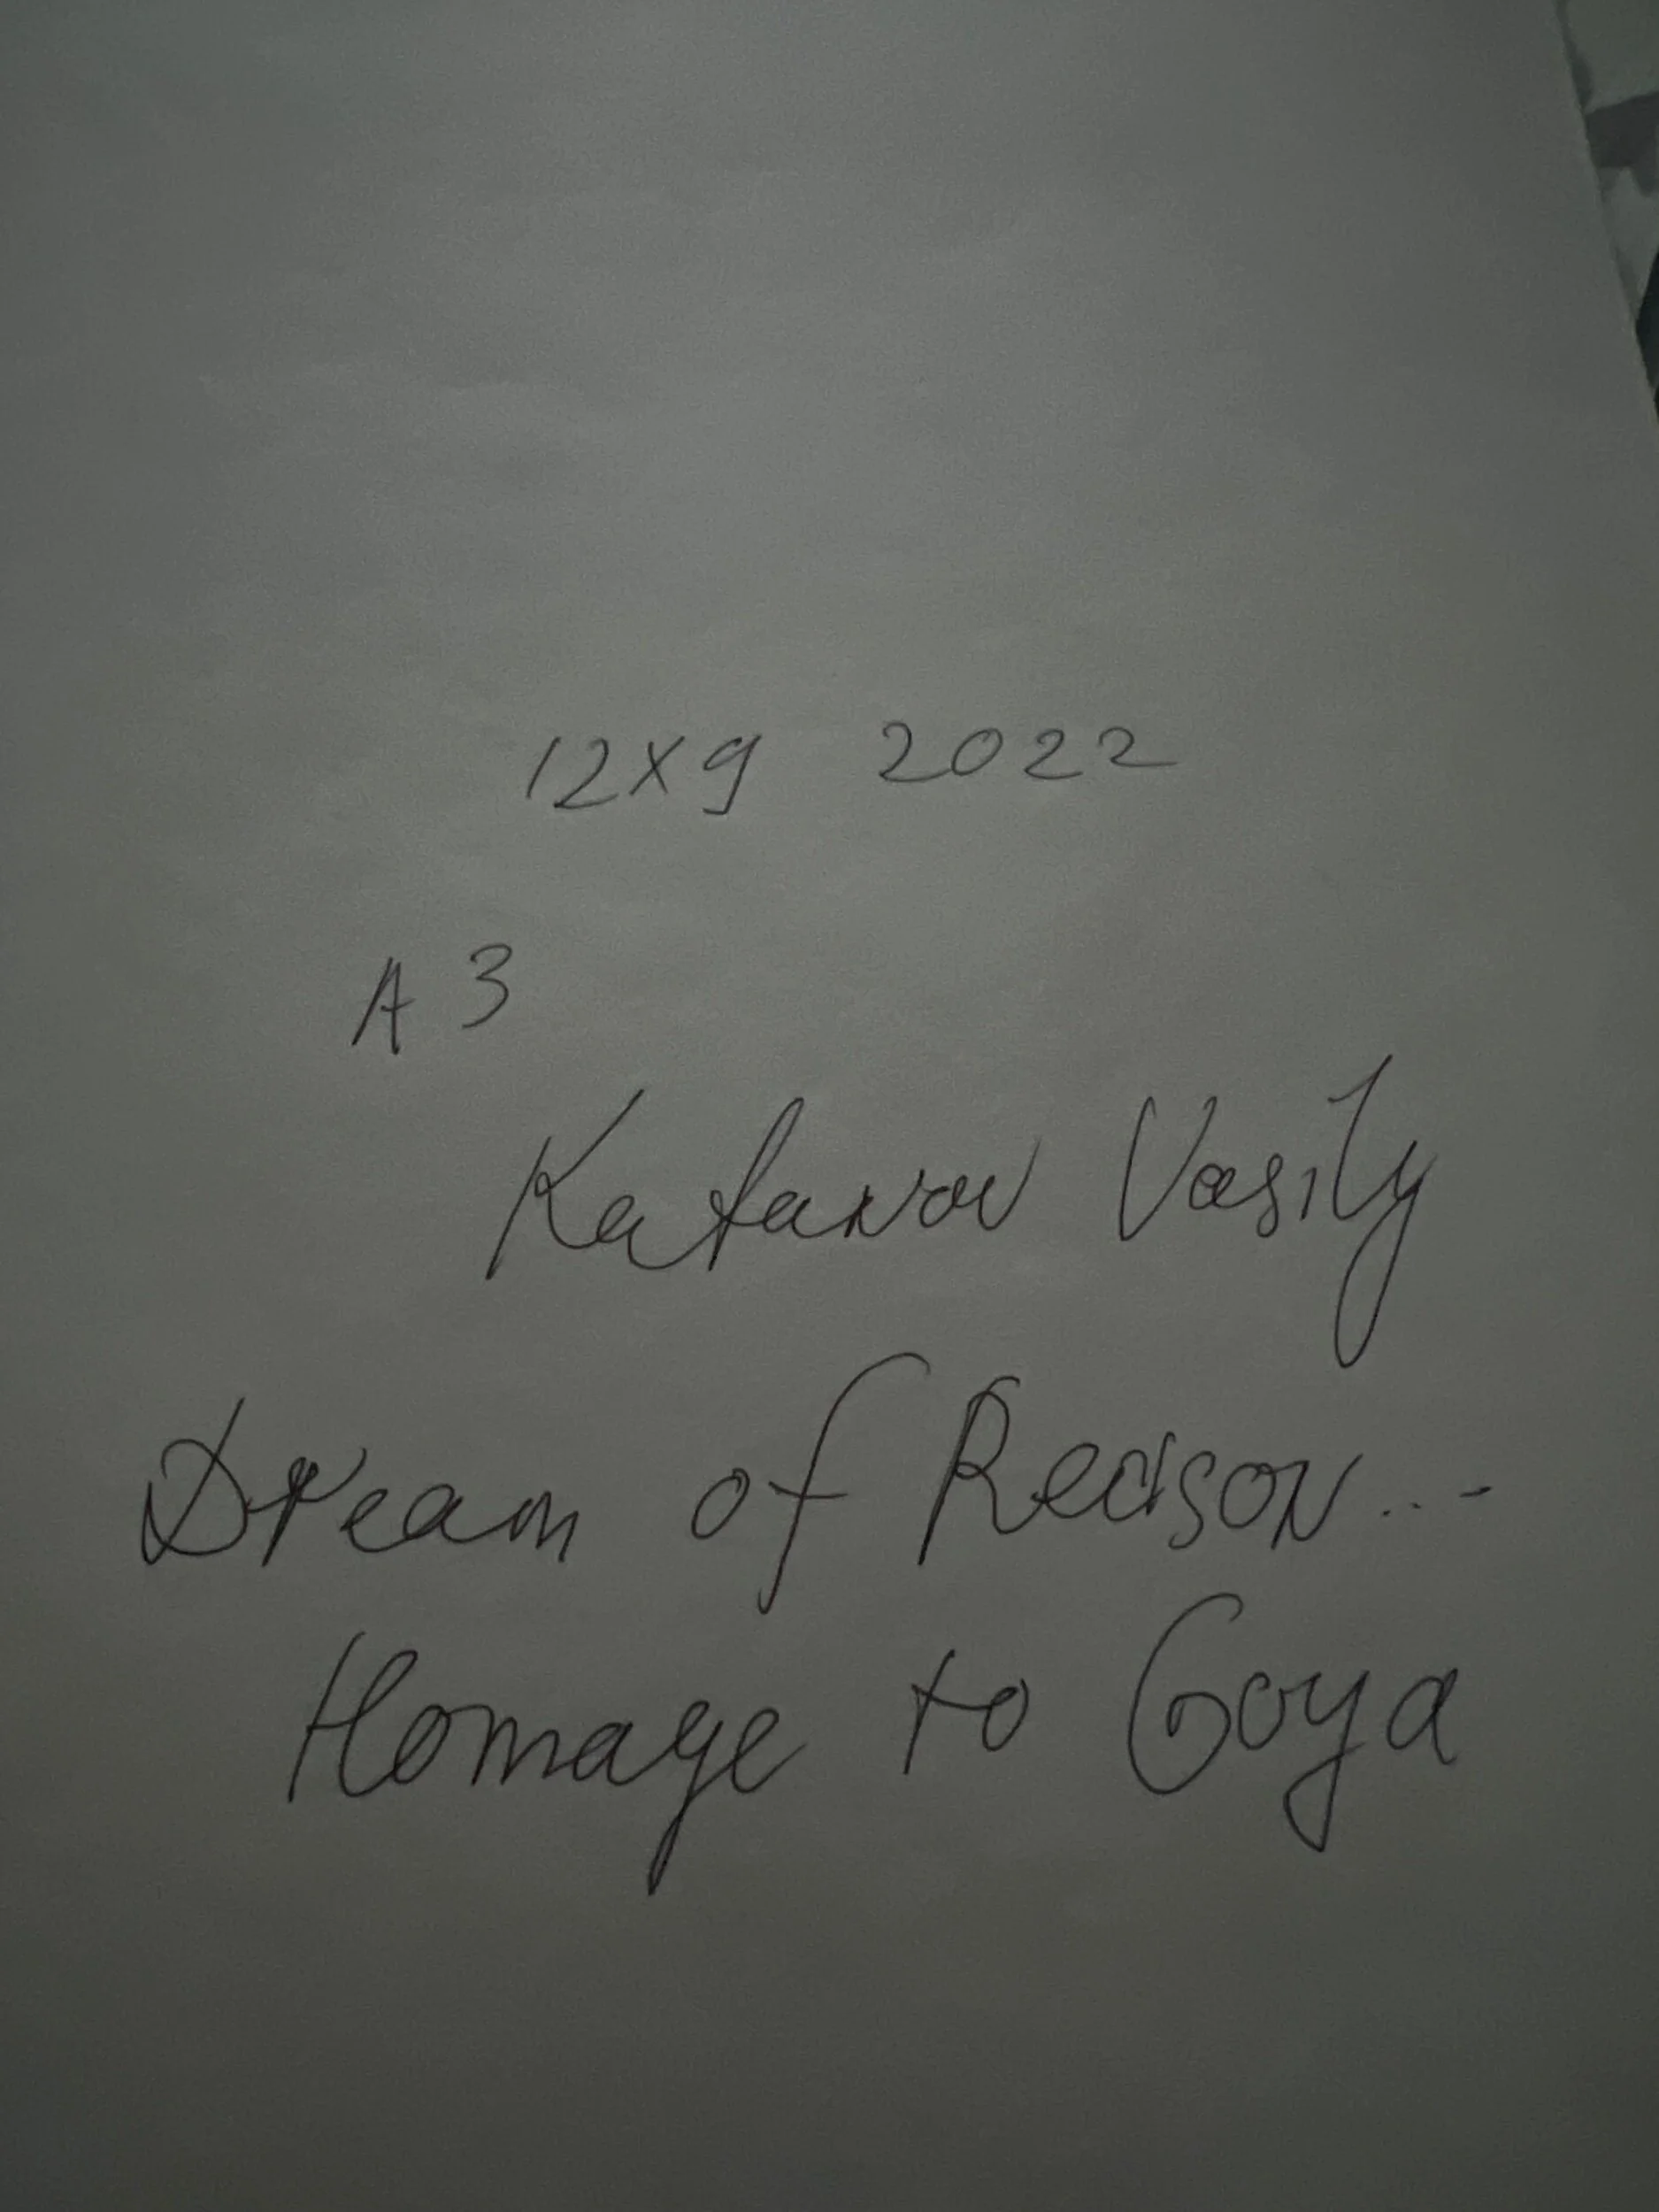 12x9 2022
A3
Katanov Vasily
Dream of Reason...
Homage to Goya